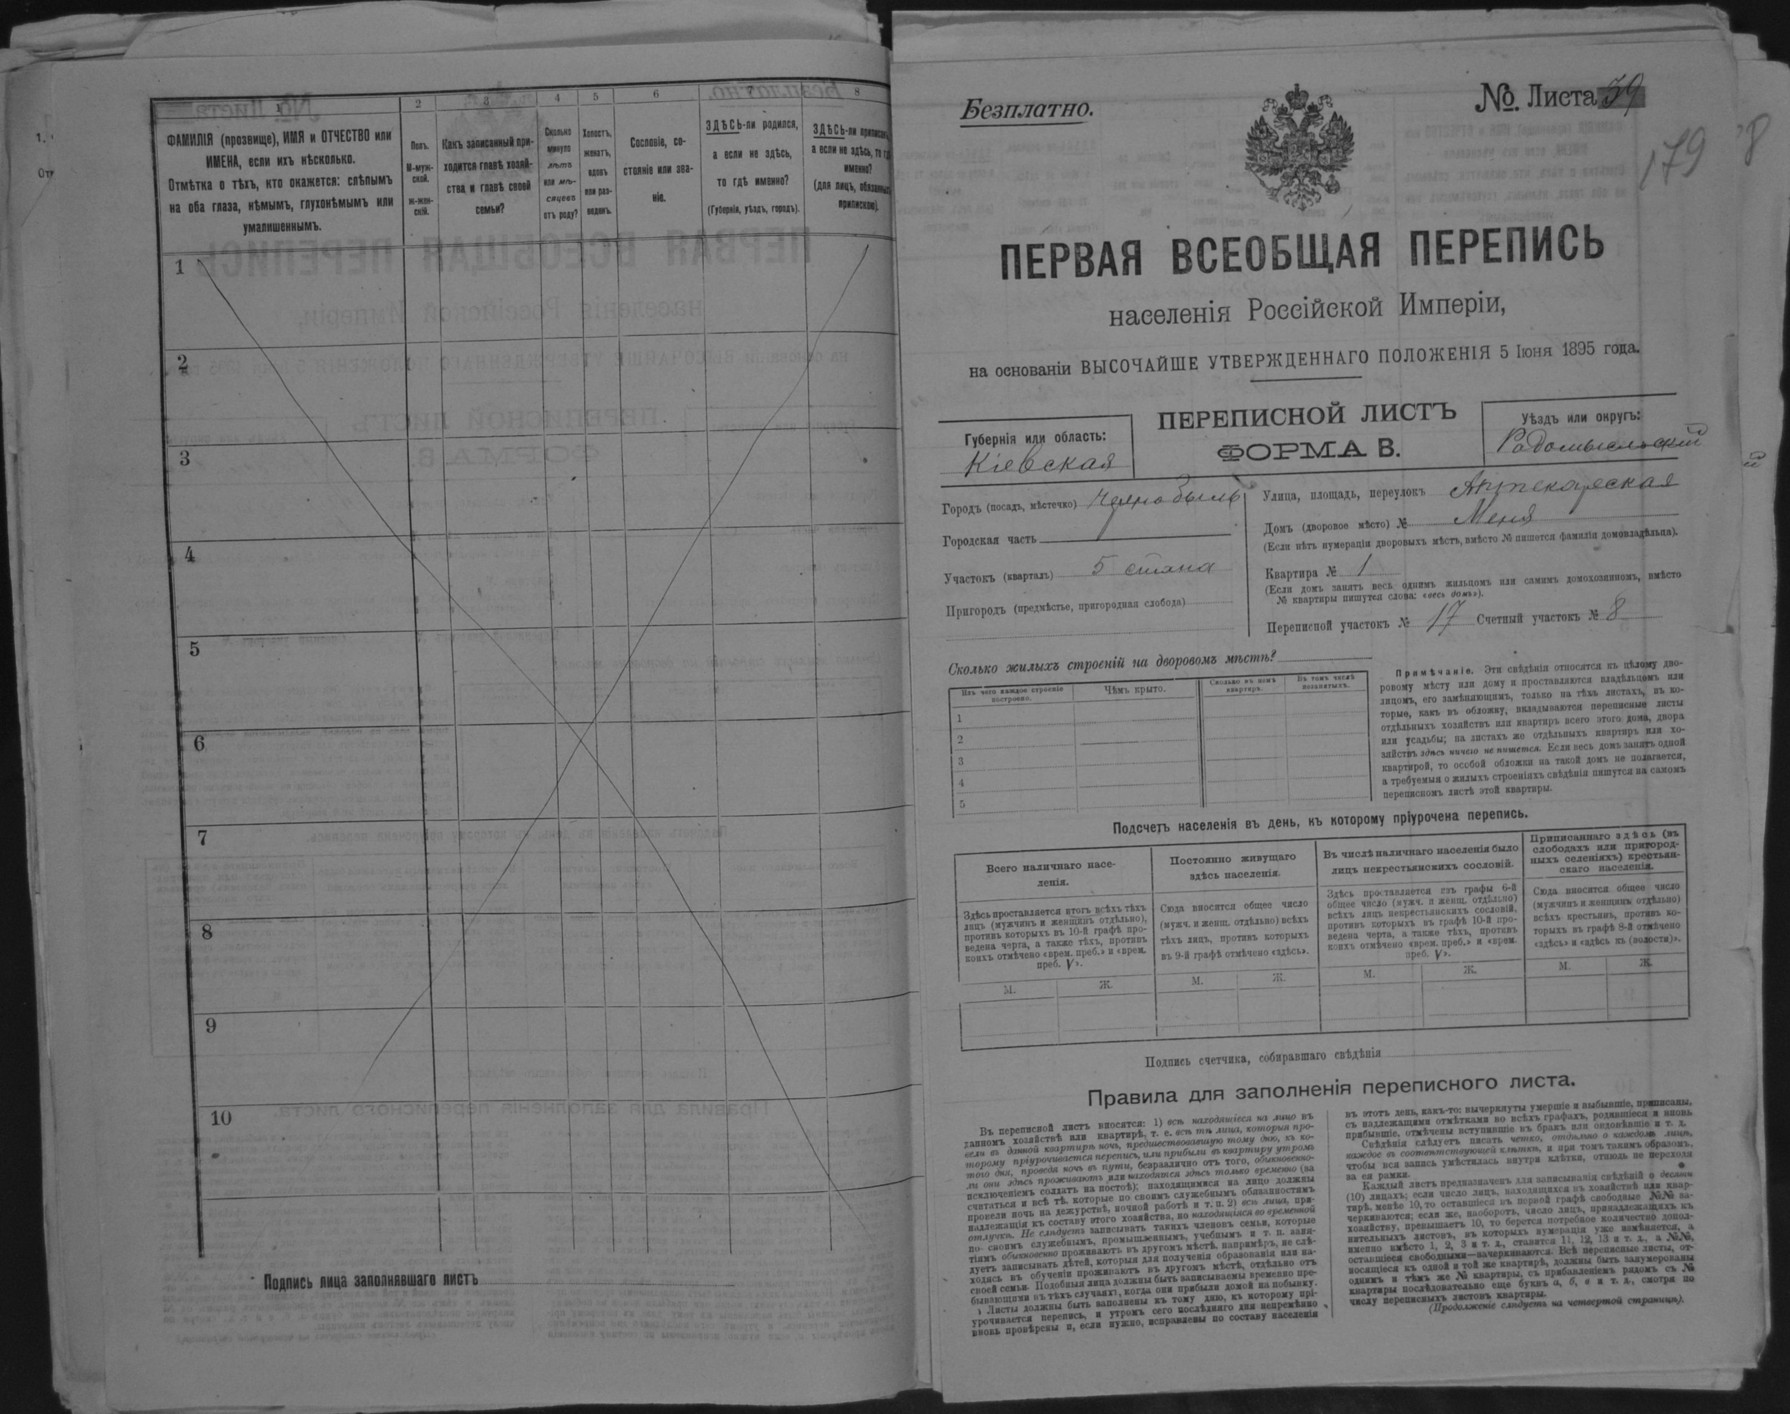 1
2
3
4
5
6
7
8
ФАМИЛІЯ (прозвище), ИМЯ и ОТЧЕСТВО или
ИМЕНА, если ихъ нѣсколько.
Отмѣтка о тѣхъ, кто окажется: слѣпымъ
на оба глаза, нѣмымъ, глухонѣмымъ или
умалишеннымъ.
Полъ.
М-муж-
ской.
Ж-жен-
скій.
Какъ записанный при-
ходится главѣ хозяй-
ства и главѣ своей
семьи?
Сколько
минуло
лѣтъ
или мѣ-
сяцевъ
отъ роду?
Холостъ,
женатъ,
вдовъ
или раз-
веденъ.
Сословіе, со-
стояніе или зва-
ніе.
ЗДѢСЬ-ли родился,
а если не здѣсь,
то гдѣ именно?
(Губернія, уѣздъ, городъ).
ЗДѢСЬ-ли приписанъ,
а если не здѣсь, то гдѣ
именно?
(для лицъ, обязанныхъ
припискою).
1
2
3
4
5
6
7
8
9
10
Подпись лица заполнявшаго листъ
Безплатно.
№ Листа 39
179
ПЕРВАЯ ВСЕОБЩАЯ ПЕРЕПИСЬ
населенія Россійской Имперіи,
на основаніи ВЫСОЧАЙШЕ УТВЕРЖДЕННАГО ПОЛОЖЕНІЯ 5 Іюня 1895 года.
Губернія или область:
Кіевская
ПЕРЕПИСНОЙ ЛИСТЪ
ФОРМА В.
Уѣздъ или округъ:
Радомысльскій
Городъ (посадъ, мѣстечко) Чернобыль
Городская часть
Участокъ (кварталъ) 5 стана
Пригородъ (предмѣстье, пригородная слобода)
Улица, площадь, переулокъ Аптекарская
Домъ (дворовое мѣсто) №
(Если нѣтъ нумераціи дворовыхъ мѣстъ, вмѣсто № пишется фамилія домовладѣльца).
Квартира № 1
(Если домъ занятъ весь однимъ жильцомъ или самимъ домохозяиномъ, вмѣсто
№ квартиры пишутся слова: «весь домъ»).
Переписной участокъ № 17 Счетный участокъ № 8
Сколько жилыхъ строеній на дворовомъ мѣстѣ?
Изъ чего каждое строеніе
построено.
Чѣмъ крыто.
Сколько въ немъ
квартиръ.
Въ томъ числѣ
незанятыхъ.
1
2
3
4
5
Примѣчаніе. Эти свѣдѣнія относятся къ цѣлому дво-
ровому мѣсту или дому и проставляются владѣльцемъ или
лицомъ, его замѣняющимъ, только на тѣхъ листахъ, въ ко-
торые, какъ въ обложку, вкладываются переписные листы
отдѣльныхъ хозяйствъ или квартиръ всего этого дома, двора
или усадьбы; на листахъ же отдѣльныхъ квартиръ или хо-
зяйствъ здѣсь ничего не пишется. Если весь домъ занятъ одной
квартирой, то особой обложки на такой домъ не полагается,
а требуемыя о жилыхъ строеніяхъ свѣдѣнія пишутся на самомъ
переписномъ листѣ этой квартиры.
Подсчетъ населенія въ день, къ которому пріурочена перепись.
Всего наличнаго насе-
ленія.
Здѣсь проставляется итогъ всѣхъ тѣхъ
лицъ (мужчинъ и женщинъ отдѣльно),
противъ которыхъ въ 10-й графѣ про-
ведена черта, а также тѣхъ, противъ
коихъ отмѣчено «врем. преб.» и «врем.
преб. V».
М. Ж.
Постоянно живущаго
здѣсь населенія.
Сюда вносится общее число
(мужч. и женщ. отдѣльно) всѣхъ
тѣхъ лицъ, противъ которыхъ
въ 9-й графѣ отмѣчено «здѣсь».
М. Ж.
Въ числѣ наличнаго населенія было
лицъ некрестьянскихъ сословій.
Здѣсь проставляется изъ графы 6-й
общее число (мужч. и женщ. отдѣльно)
всѣхъ лицъ некрестьянскихъ сословій,
противъ которыхъ въ графѣ 10-й про-
ведена черта, а также тѣхъ, противъ
коихъ отмѣчено «врем. преб.» и «врем.
преб. V».
М. Ж.
Приписаннаго здѣсь (въ
слободахъ или пригород-
ныхъ селеніяхъ) крестьян-
скаго населенія.
Сюда вносится общее число
(мужчинъ и женщинъ отдѣльно)
всѣхъ крестьянъ, противъ ко-
торыхъ въ графѣ 8-й отмѣчено
«здѣсь» и «здѣсь въ (волости)».
М. Ж.
Подпись счетчика, собиравшаго свѣдѣнія
Правила для заполненія переписного листа.
Въ переписной листъ вносятся: 1) всѣ находящіеся на лицо въ
данномъ хозяйствѣ или квартирѣ, т. е. всѣ тѣ лица, которыя про-
вели въ данной квартирѣ ночь, предшествовавшую тому дню, къ ко-
торому пріурочивается перепись, или прибыли въ квартиру утромъ
того дня, проведя ночь въ пути, безразлично отъ того, обыкновенно-
ли они здѣсь проживаютъ или находятся здѣсь только временно (за
исключеніемъ солдатъ на постоѣ); находящимися на лицо должны
считаться и всѣ тѣ, которые по своимъ служебнымъ обязанностямъ
провели ночь на дежурствѣ, ночной работѣ и т. п. 2) всѣ лица, при-
надлежащія къ составу этого хозяйства, но находящіяся во временной
отлучкѣ. Не слѣдуетъ записывать такихъ членовъ семьи, которые
по своимъ служебнымъ, промышленнымъ, учебнымъ и т. п. заня-
тіямъ обыкновенно проживаютъ въ другомъ мѣстѣ, напримѣръ, не слѣ-
дуетъ записывать дѣтей, которыя для полученія образованія или на-
ходясь въ обученіи проживаютъ въ другомъ мѣстѣ, отдѣльно отъ
своей семьи. Подобныя лица должны быть записываемы временно пре-
бывающими въ тѣхъ случаяхъ, когда они прибыли домой на побывку.
Листы должны быть заполнены къ тому дню, къ которому прі-
урочивается перепись, и утромъ сего послѣдняго дня непремѣнно
вновь провѣрены и, если нужно, исправлены по составу населенія
въ этотъ день, какъ-то: вычеркнуты умершіе и выбывшіе, приписаны,
съ надлежащими отмѣтками во всѣхъ графахъ, родившіеся и вновь
прибывшіе, отмѣчены вступившіе въ бракъ или овдовѣвшіе и т. д.
Свѣдѣнія слѣдуетъ писать четко, отдѣльно о каждомъ лицѣ,
каждое въ соотвѣтствующей клѣткѣ, и при томъ такимъ образомъ,
чтобы вся запись умѣстилась внутри клѣтки, отнюдь не переходя
за ея рамки.
Каждый листъ предназначенъ для записыванія свѣдѣній о десяти
(10) лицахъ; если число лицъ, находящихся въ хозяйствѣ или квар-
тирѣ, менѣе 10, то оставшіеся въ первой графѣ свободные №№ за-
черкиваются; если же, наоборотъ, число лицъ, принадлежащихъ къ
хозяйству, превышаетъ 10, то берется потребное количество допол-
нительныхъ листовъ, въ которыхъ нумерація уже измѣняется, а
именно вмѣсто 1, 2, 3 и т. д., ставится 11, 12, 13 и т. д., а №№,
оставшіеся свободными—зачеркиваются. Всѣ переписные листы, от-
носящіеся къ одной и той же квартирѣ, должны быть занумерованы
однимъ и тѣмъ же № квартиры, съ прибавленіемъ рядомъ съ №
квартиры послѣдовательно еще буквъ а, б, в и т. д., смотря по
числу переписныхъ листовъ квартиры.
(Продолженіе слѣдуетъ на четвертой страницѣ).